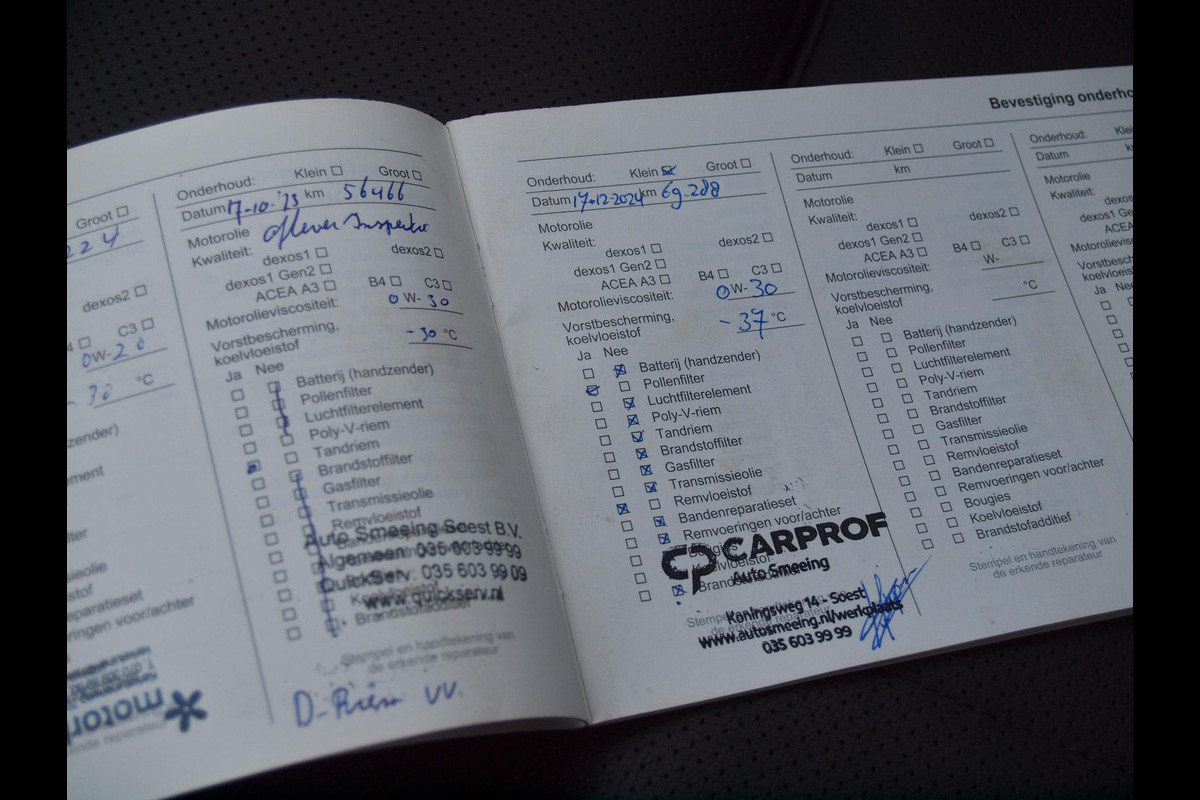 Groot ☐
224
dexos2 ☐
C3 ☐
0W-20
-30 °C
zender)
ement
ter
ieolie
stof
eparatieset
eringen voor/achter
motor
ende reparateur
Onderhoud: Klein ☐ Groot ☐
Datum 17-10-'23 km 56466
Motorolie aflever Inspektie
Kwaliteit:
dexos1 ☐ dexos2 ☐
dexos1 Gen2 ☐
ACEA A3 ☐ B4 ☐ C3 ☐
Motorolieviscositeit: 0W-30
Vorstbescherming,
koelvloeistof -30 °C
Ja Nee
Batterij (handzender)
Pollenfilter
Luchtfilterelement
Poly-V-riem
Tandriem
Brandstoffilter
Gasfilter
Transmissieolie
Remvloeistof
Auto Smeeing Soest B.V.
Algemeen: 035 603 99 99
QuickServ: 035 603 99 09
www.quickserv.nl
Brandstofadditief
Stempel en handtekening van
de erkende reparateur
D-Riem VV.
Bevestiging onderho
Onderhoud: Klein ☒ Groot ☐
Datum 17-12-2024 km 69.288
Motorolie
Kwaliteit:
dexos1 ☐ dexos2 ☐
dexos1 Gen2 ☐
ACEA A3 ☐ B4 ☐ C3 ☐
Motorolieviscositeit: 0W-30
Vorstbescherming,
koelvloeistof -37 °C
Ja Nee
Batterij (handzender)
Pollenfilter
Luchtfilterelement
Poly-V-riem
Tandriem
Brandstoffilter
Gasfilter
Transmissieolie
Remvloeistof
Bandenreparatieset
Remvoeringen voor/achter
Bougies
Koelvloeistof
Brandstofadditief
CP CARPROF
Auto Smeeing
Koningsweg 14 - Soest
www.autosmeeing.nl/werkplaats
035 603 99 99
Stempel en
de er
Onderhoud: Klein ☐ Groot ☐
Datum km
Motorolie
Kwaliteit:
dexos1 ☐ dexos2 ☐
dexos1 Gen2 ☐
ACEA A3 ☐ B4 ☐ C3 ☐
Motorolieviscositeit: W-
Vorstbescherming,
koelvloeistof °C
Ja Nee
Batterij (handzender)
Pollenfilter
Luchtfilterelement
Poly-V-riem
Tandriem
Brandstoffilter
Gasfilter
Transmissieolie
Remvloeistof
Bandenreparatieset
Remvoeringen voor/achter
Bougies
Koelvloeistof
Brandstofadditief
Stempel en handtekening van
de erkende reparateur
Onderhoud: Klei
Datum k
Motorolie
Kwaliteit:
dexos
dexos1 G
ACEA
Motorolievisc
Vorstbesche
koelvloeistof
Ja Nee